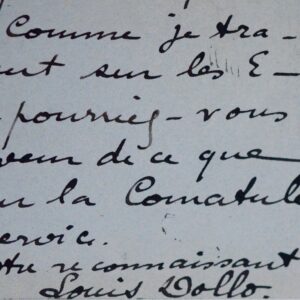 Comme je tra-
sur les E-
pourriez-vous
de ce que
la Comatule
ervice.
reconnaissant
Louis Dollo.